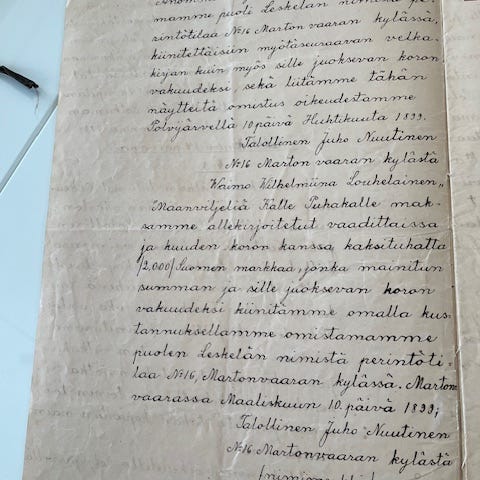 mamme puoli Leskelän nimistä pe-
rintötilaa No16 Marton vaaran kylässä,
kiinitettäisiin myötäseuraavan velka-
kirjan kuin myös sille juoksevan koron
vakuudeksi, sekä liitämme tähän
näytteitä omistus oikeudestamme
Polvijärvellä 10 päivä Huhtikuuta 1899.
Talollinen Juho Nuutinen
No16 Marton vaaran kylästä
Waimo Wilhelmiina Louhelainen„
Maanviljeliä Kalle Puhakalle mak-
samme allekirjoitetut vaadittaissa
ja kuuden koron kanssa kaksituhatta
/2,000/ Suomen markkaa, jonka mainitun
summan ja sille juoksevan koron
vakuudeksi kiinitämme omalla kus-
tannuksellamme omistamamme
puolen Leskelän nimistä perintöti-
laa No16, Martonvaaran kylässä. Marton
vaarassa Maaliskuun 10. päivä 1899;
Talollinen Juho Nuutinen
No16 Martonvaaran kylästä